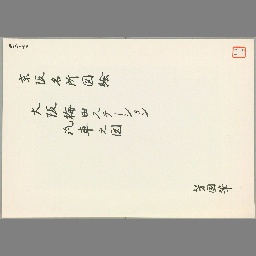 京阪名所図絵
大阪梅田ステーション
汽車之図
芳國筆